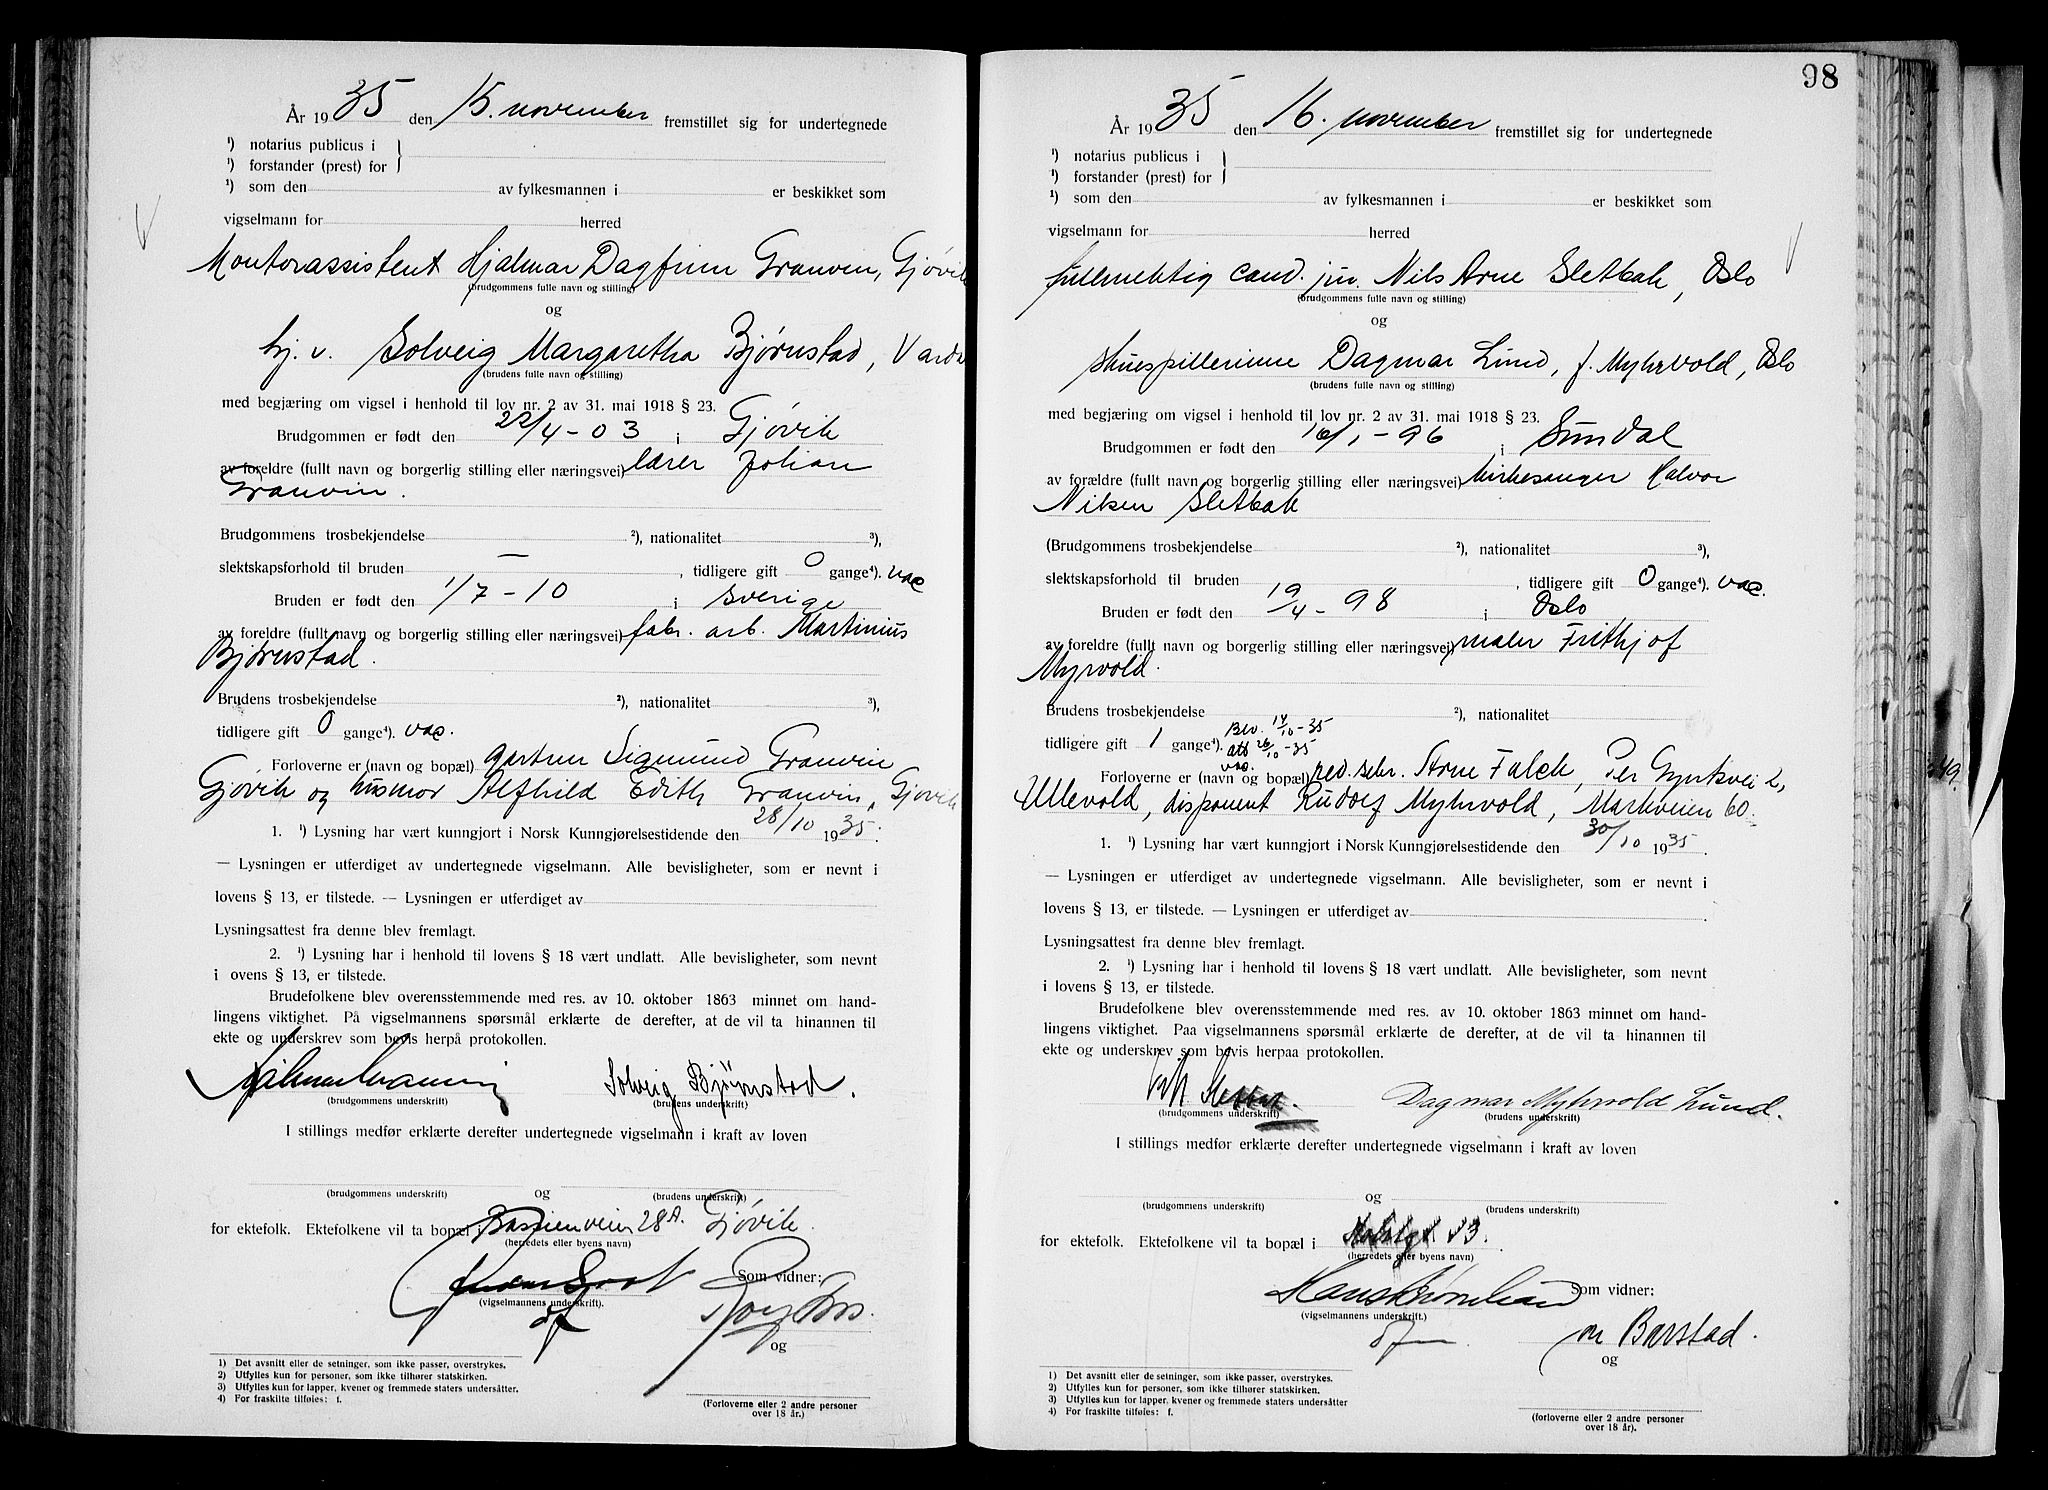 År 1935 den 15. november fremstillet sig for undertegnede
¹) notarius publicus i
¹) forstander (prest) for
¹) som den av fylkesmannen i er beskikket som
vigselmann for herred
Kontorassistent Hjalmar Dagfinn Granvin, Gjøvik
(brudgommens fulle navn og stilling)
og
hj. v. Solveig Margaretha Bjørnstad, Vardø
(brudens fulle navn og stilling)
med begjæring om vigsel i henhold til lov nr. 2 av 31. mai 1918 § 23.
Brudgommen er født den 22/4-03 i Gjøvik
av foreldre (fullt navn og borgerlig stilling eller næringsvei) lærer Johan
Granvin.
Brudgommens trosbekjendelse ²), nationalitet ³),
slektskapsforhold til bruden — , tidligere gift 0 gange⁴). vac
Bruden er født den 1/7-10 i Sverige
av foreldre (fullt navn og borgerlig stilling eller næringsvei) fabr. arb. Martinius
Bjørnstad.
Brudens trosbekjendelse ²), nationalitet ³),
tidligere gift 0 gange⁴). vac.
Forloverne er (navn og bopæl) gartner Sigmund Granvin
Gjøvik og husmor Alfhild Edith Granvin, Gjøvik
1. ¹) Lysning har vært kunngjort i Norsk Kunngjørelsestidende den 28/10 1935.
— Lysningen er utferdiget av undertegnede vigselmann. Alle bevisligheter, som er nevnt i
lovens § 13, er tilstede. — Lysningen er utferdiget av
Lysningsattest fra denne blev fremlagt.
2. ¹) Lysning har i henhold til lovens § 18 vært undlatt. Alle bevisligheter, som nevnt
i ovens § 13, er tilstede.
Brudefolkene blev overensstemmende med res. av 10. oktober 1863 minnet om hand-
lingens viktighet. På vigselmannens spørsmål erklærte de derefter, at de vil ta hinannen til
ekte og underskrev som bevis herpå protokollen.
Hjalmar Granvin Solveig Bjørnstad.
(brudgommens underskrift) (brudens underskrift)
I stillings medfør erklærte derefter undertegnede vigselmann i kraft av loven
og
(brudgommens underskrift) (brudens underskrift)
for ektefolk. Ektefolkene vil ta bopæl i 28A. Gjøvik.
(herredets eller byens navn)
Som vidner:
(vigselmannens underskrift).
og
1) Det avsnitt eller de setninger, som ikke passer, overstrykes.
2) Utfylles kun for personer, som ikke tilhører statskirken.
3) Utfylles kun for lapper, kvener og fremmede staters undersåtter.
4) For fraskilte tilføies: f.
(Forloverne eller 2 andre personer
over 18 år.)
98
År 1935 den 16. november fremstillet sig for undertegnede
¹) notarius publicus i
¹) forstander (prest) for
¹) som den av fylkesmannen i er beskikket som
vigselmann for herred
fullmektig cand. jur. Nils Arne Sletbak, Oslo
(brudgommens fulle navn og stilling)
og
skuespillerinne Dagmar Lund, f. Myhrvold, Oslo
(brudens fulle navn og stilling)
med begjæring om vigsel i henhold til lov nr. 2 av 31. mai 1918 § 23.
Brudgommen er født den 16/1-96 i Sundal
av forældre (fullt navn og borgerlig stilling eller næringsvei) kirkesanger Halvor
Nilsen Sletbak
(Brudgommens trosbekjendelse ²), nationalitet ³),
slektskapsforhold til bruden , tidligere gift 0 gange⁴). vac.
Bruden er født den 19/4-98 i Oslo
av foreldre (fullt navn og borgerlig stilling eller næringsvei) maler Frithjof
Myrvold.
Brudens trosbekjendelse ²), nationalitet ³),
Bev. 14/10-35
tidligere gift 1 gange⁴). att 26/10-35
vac.
Forloverne er (navn og bopæl) red. sekr. Arne Falck, Per Gyntsvei 2,
Ullevold, disponent Rudolf Myhrvold, Markveien 60.
1. ¹) Lysning har vært kunngjort i Norsk Kunngjørelsestidende den 30/10 1935.
— Lysningen er utferdiget av undertegnede vigselmann. Alle bevisligheter, som er nevnt i
lovens § 13, er tilstede. — Lysningen er utferdiget av
Lysningsattest fra denne blev fremlagt.
2. ¹) Lysning har i henhold til lovens § 18 vært undlatt. Alle bevisligheter, som nevnt
i lovens § 13, er tilstede.
Brudefolkene blev overensstemmende med res. av 10. oktober 1863 minnet om hand-
lingens viktighet. Paa vigselmannens spørsmål erklærte de derefter, at de vil ta hinannen til
ekte og underskrev som bevis herpaa protokollen.
Sletbak. Dagmar Myhrvold Lund.
(brudgommens underskrift) (brudens underskrift)
I stillings medfør erklærte derefter undertegnede vigselmann i kraft av loven
og
(brudgommens underskrift) (brudens underskrift)
for ektefolk. Ektefolkene vil ta bopæl i
(herredets eller byens navn)
Som vidner:
(vigselmannens underskrift.)
Barstad.
og
1) Det avsnitt eller de setninger, som ikke passer, overstrykes.
2) Utfylles kun for personer, som ikke tilhører statskirken.
3) Utfylles kun for lapper, kvener og fremmede staters undersåtter
4) For fraskilte tilføies: f.
(forloverne eller 2 andre personer
over 18 år).